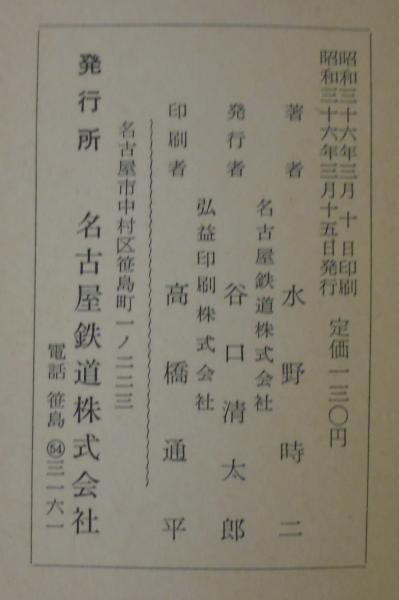 昭和三十六年三月十日印刷
昭和三十六年三月十五日発行
定価一三〇円
著者 水野時二
名古屋鉄道株式会社
発行者 谷口清太郎
弘益印刷株式会社
印刷者 高橋通平
名古屋市中村区笹島町一ノ二二三
発行所 名古屋鉄道株式会社
電話 笹島 54 三一六一